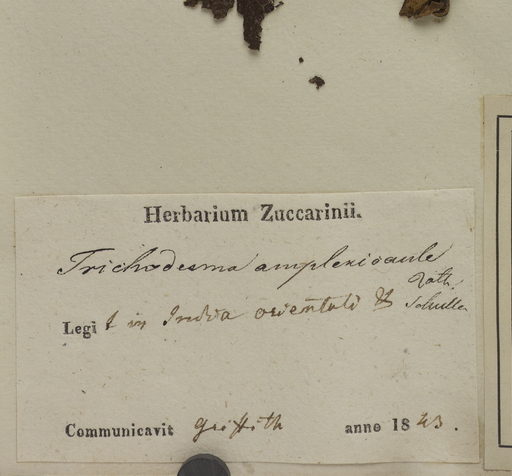 Herbarium Zuccarinii.
Trichodesma amplexicaule
Roth.
Legit in India orientali
Communicavit Griffith anno 1843.